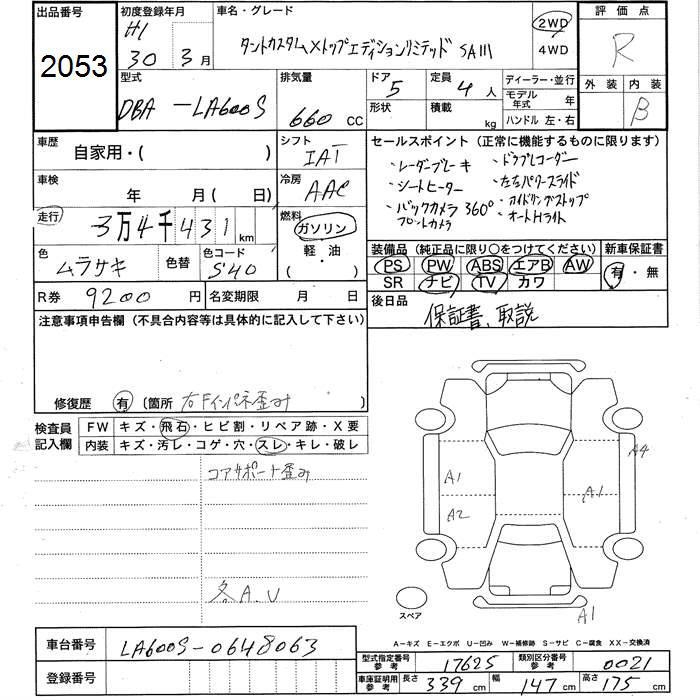 出品番号
2053
初度登録年月
H1
30年 3月
車名・グレード
タントカスタムXトップエディションリミテッド SAIII
2WD
4WD
評価点
R
外装 内装
B
型式
DBA-LA600S
排気量
660 CC
ドア 5
形状
定員 4人
積載 kg
ディーラー・並行
モデル年式 年
ハンドル 左・右
車歴
自家用・( )
シフト
IAT
車検
年 月(日)
冷房
AAC
走行
3万4千431km
燃料
ガソリン
軽・油
(・)
色
ムラサキ
色替
色コード
S40
R券 9200円
名変期限 月 日
セールスポイント(正常に機能するものに限ります)
・レーダーブレーキ
・シートヒーター
・バックカメラ 360°
フロントカメラ
・ドラブレコーダー
・左右パワースライド
・アイドリングストップ
・オートHライト
装備品(純正品に限り○をつけてください)
PS PW ABS エアB AW
SR ナビ TV カワ
新車保証書
有・無
後日品
保証書、取説
注意事項申告欄(不具合内容等は具体的に記入して下さい)
修復歴 有(箇所 右Fインパネ歪み
検査員記入欄
FW キズ・飛石・ヒビ割・リペア跡・X要
内装 キズ・汚レ・コゲ・穴・スレ・キレ・破レ
コアサポート歪み
各A.U
A4
A1
A1
A2
A1
スペア
A-キズ E-エクボ U-凹み W-補修跡 S-サビ C-腐食 XX-交換済
車台番号
LA600S-0648063
登録番号
型式指定番号 参考 17625
類別区分番号 参考 0021
車庫証明用 参考 長さ 339cm 幅 147cm 高さ 175cm